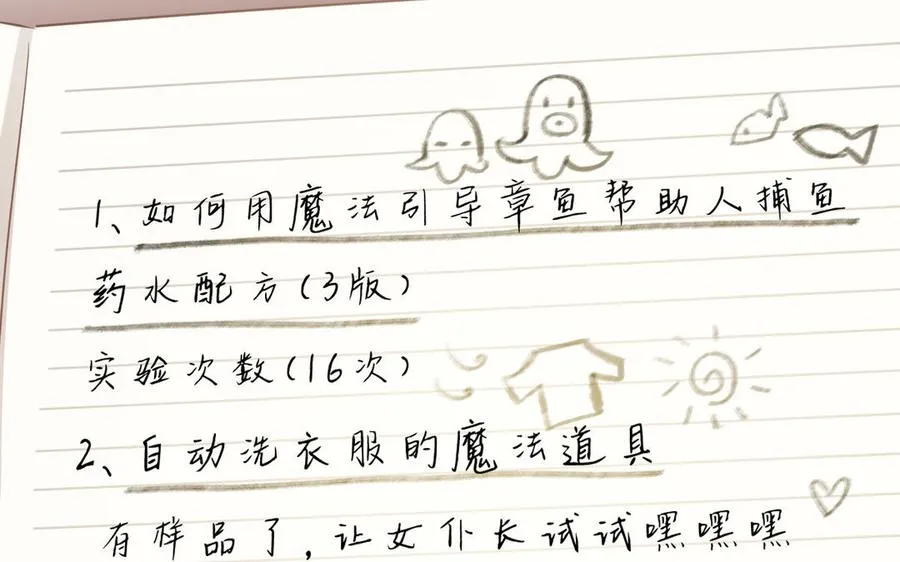 1、如何用魔法引导章鱼帮助人捕鱼
药水配方(3版)
实验次数(16次)
2、自动洗衣服的魔法道具
有样品了,让女仆长试试嘿嘿嘿